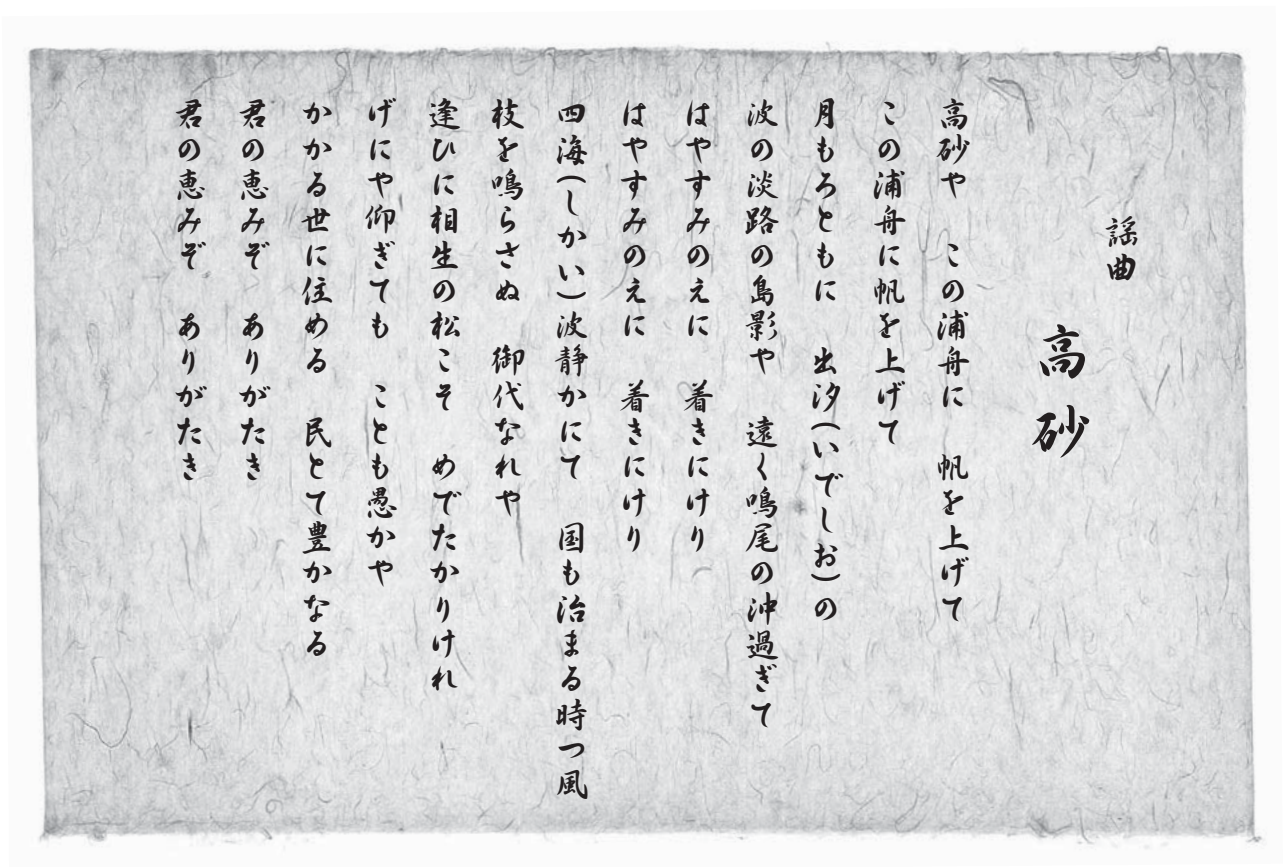 謡曲
高砂
高砂や　この浦舟に　帆を上げて
この浦舟に帆を上げて
月もろともに　出汐(いでしお)の
波の淡路の島影や　遠く鳴尾の沖過ぎて
はやすみのえに　着きにけり
はやすみのえに　着きにけり
四海(しかい)波静かにて　国も治まる時つ風
枝を鳴らさぬ　御代なれや
逢ひに相生の松こそ　めでたかりけれ
げにや仰ぎても　ことも愚かや
かかる世に住める　民とて豊かなる
君の恵みぞ　ありがたき
君の恵みぞ　ありがたき